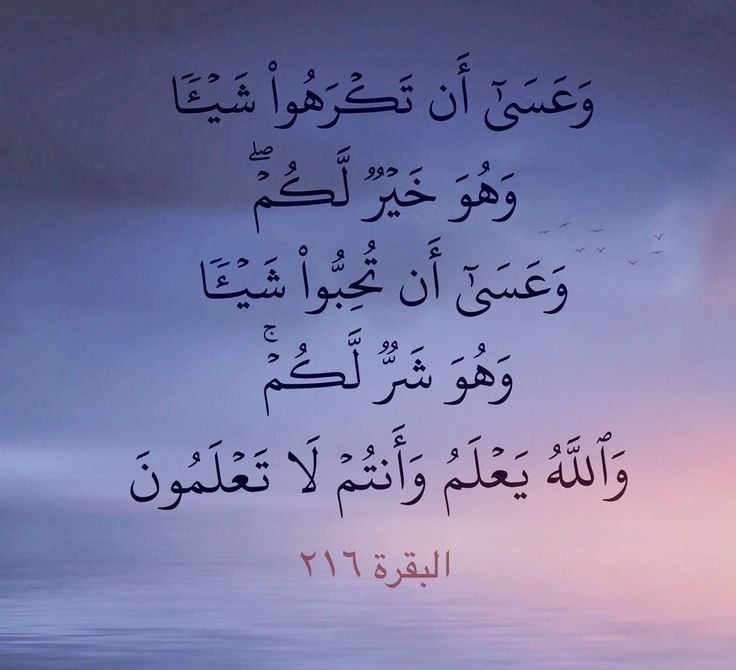 وَعَسَىٰٓ أَن تَكۡرَهُواْ شَيۡـٔٗا
وَهُوَ خَيۡرٞ لَّكُمۡۖ
وَعَسَىٰٓ أَن تُحِبُّواْ شَيۡـٔٗا
وَهُوَ شَرّٞ لَّكُمۡۚ
وَٱللَّهُ يَعۡلَمُ وَأَنتُمۡ لَا تَعۡلَمُونَ
البقرة ٢١٦